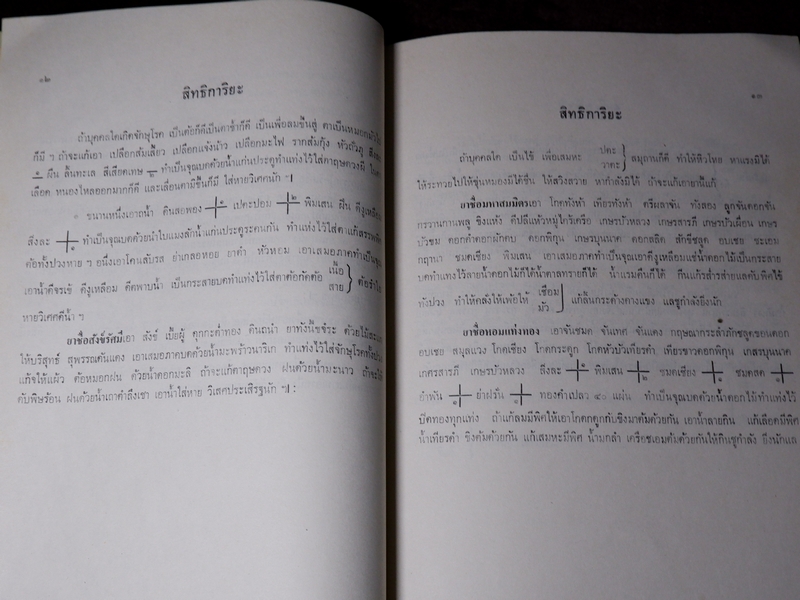 ๑๒
สิทธิการิยะ
ถ้าบุคคลใดเกิดจักษุโรค เป็นต้อก็ดีเป็นตาช้ำก็ดี เป็นเพื่อลมขึ้นสู่ ตาเป็นหมอกมัวไป
ก็มี ฯ ถ้าจะแก้เอา เปลือกส้มเสี้ยว เปลือกแจงน้าว เปลือกมะไฟ รากส้มกุ้ง หัวถั่วภู สิ่งละ
๑ ฝิ่น ลิ้นทะเล สีเสียดเทษ ทำเป็นจุณบดด้วยน้ำแก่นประดูทำแท่งไว้ใส่ตาฤดวงมี
เลือด หนองไหลออกมากก็ดี และเลื่อนตามิขึ้นก็มี ใส่หายวิเศศนัก ฯ
ขนานหนึ่งเอาถน้ำ ดินสอพอง ๑ เปดะปอม ๒ พิมเสน ฝิ่น ดีงูเหลือม
สิ่งละ ๑ ทำเป็นจุณบดด้วยน้ำใบแมงลักน้ำแก่นประดูระคนกัน ทำแท่งไว้ใส่ตาแก้สรรพ
ต้อทั้งปวงหาย ฯ อนึ่งเอาโคนสับรส ย่าเกลอหอย ยาดำ หัวหอม เอาเสมอภาคทำเป็นจุณ
เอาน้ำดีจรเข้ ดีงูเหลือม ดีตพาบน้ำ เป็นกระสายบดทำแท่งไว้ใส่ตาต้อกัดต้อ เนื้อ
ลาย
หายวิเศศดีน้ำ ฯ
ยาชื่อสังข์รัศมีเอา สังข์ เบี้ยผู้ ดุกกะด่ำทอง ดินถนำ ยาทังนี้ขจ์ระ ด้วยไม้
ให้บริสุทธ์ สุพรรณตันแดง เอาเสมอภาคบดด้วยน้ำมะพร้าวนาริเก ทำแท่งไว้ใส่จักษุโรคทั้งปวง
แก้จให้แผ้ว ต้อหมอกฝน ด้วยน้ำดอกมะลิ ถ้าจะแก้ตาฤดวง ฝนด้วยน้ำมะนาว ถ้าจะ
ดับพิษร้อน ฝนด้วยน้ำเถาตำลึงเชา เอาน้ำใส่หาย วิเสศประเสิรฐนัก ฯ :
๑๓
สิทธิการิยะ
ถ้าบุคคลใด เป็นไข้ เพื่อเสมหะ ปตะ วาตะ สมุถานก็ดี ทำให้หิวโหย หาแรงมิได้
ให้ระทวยไปให้ชุ่นหมองมิได้ชื่น ให้สวิงสวาย หากำลังมิได้ ถ้าจะแก้เอายานี้แก้
ยาชื่อมหาสมมิตรเอา โกถทังห้า เทียรทังห้า ตรีผลาขัน ทังสอง ลูกขันดอกขัน
กรวานกานพลู ขิงแห้ง ดีปลีแห้วหมูไคร้เครือ เกษรบัวหลวง เกษรสารภี เกษรบัวเผื่อน เกษร
บัวชม ดอกคำดอกผักตบ ดอกพิกุน เกษรบุนนาค ดอกสลิด สักขีชลูด อบเชย ชะเอม
กฤษนา ชมดเชียง พิมเสน เอาเสมอภาคทำเป็นจุณเอาดีงูเหลือมแซ่น้ำดอกไม้เป็นกระสาย
บดทำแท่งไว้ลายน้ำดอกไม้ก็ได้น้ำตาลทรายก็ได้ น้ำแรมคืนก็ได้ กินแก้รส่ำรส่ายแลดับพิศไข้
ทังปวง ทำให้คลั่งให้เพ้อให้ เชื่อม มัว แก้ลิ้นกระด้างคางแขง แลชูกำลังยิ่งนัก
ยาชื่อหอมแท่งทอง เอาจันชมด จันเทศ จันแดง กฤษณากระลำภักชลูดขอนดอก
อบเชย สมุลแวง โกดเชียง โกดกระดูก โกดหัวบัวเทียรดำ เทียรขาวดอกพิกุน เกสรบุนนาค
เกศรสารภี เกษรบัวหลวง สิ่งละ ๑ พิมเสน ๒ ชมดเชียง ๑ ชมดสด ๑
อำพัน ๑ ย่าฝรั่น ๑ ทองคำเปลว ๔๐ แผ่น ทำเป็นจุณบดด้วยน้ำดอกไม้ทำแท่งไว้
ปิดทองทุกแท่ง ถ้าแก้ลมมีพิศให้เอาโกดกดูกกับขิงมาต้มด้วยกัน เอาน้ำลายกิน แก้เลือดมีพิศ
น้ำเทียรดำ ขิงต้มด้วยกัน แก้เสมหะมีพิศ น้ำมกล่ำ เครือชเอมต้มด้วยกันให้กินชูกำลัง ยิ่งนักแล